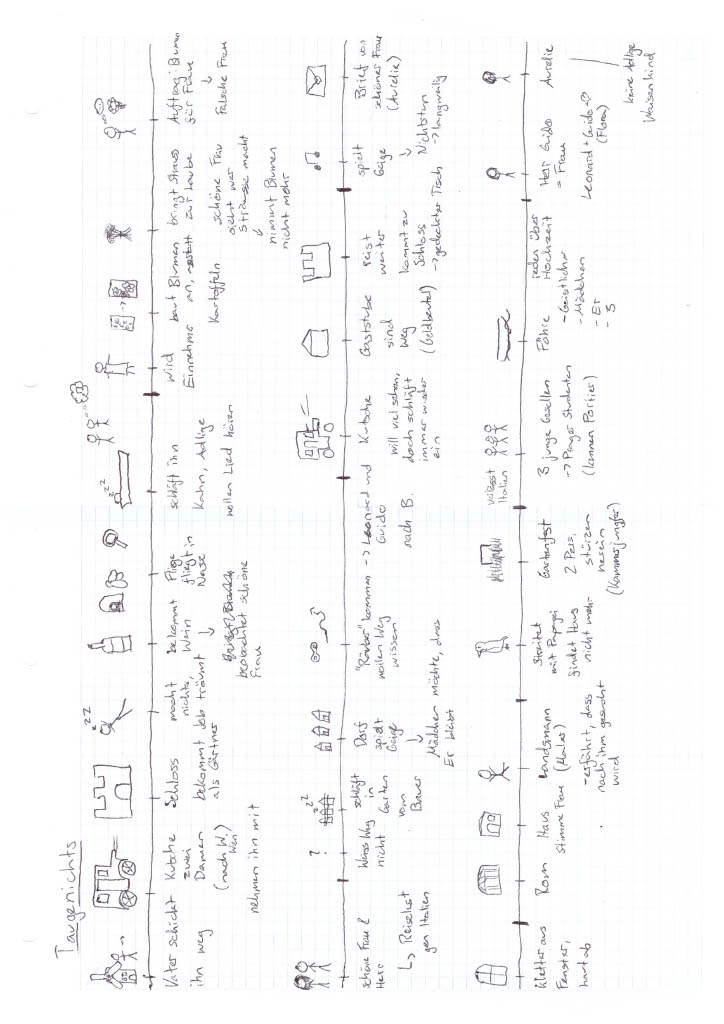 Taugenichts
Vater schickt
ihn weg
Kutsche
zwei
Damen
(nach W.)
Wien
nehmen ihn mit
Schloss
bekommt Job
als Gärtner
zZ
macht
nichts,
träumt
bekommt
Wein
↓
beobachtet schöne
Frau
Fliege
fliegt in
Nase
zZZ
schläft ihn
Kahn, Adlige
wollen Lied hören
wird
Einnehmer
baut Blumen
an, anstatt
Kartoffeln
bringt Strauss
zur Laube
schöne Frau
sieht wer
Sträusse macht
↓
nimmt Blumen
nicht mehr
Auftrag: Blumen
für Frau
↓
Falsche Frau
schöne Frau &
Herr
↳ Reiselust
gen Italien
?
Weiss Weg
nicht
zZ
schläft
in
Garten
vom
Bauer
Dorf
spielt
Geige
↓
Mädchen möchte, dass
Er bleibt
"Räuber" kommen
wollen Weg
wissen
→ Leonard und
Guido
nach B.
Kutsche
will viel sehen,
doch schläft
immer wieder
ein
Gaststube
sind
weg
(Geldbeutel)
reist
weiter
kommt zu
Schloss
→ gedeckter Tisch
spielt
Geige
↓
Nichtstun
→ langweilig
Brief von
schöner Frau
(Aurelie)
klettert aus
Fenster,
haut ab
Rom
Haus
Stimme Frau
Landsmann
(Maler)
- erfährt, dass
nach ihm gesucht
wird
Streitet
mit Papagei
findet Haus
nicht mehr
Gartenfest
2 Pers.
stürzen
herein
(Kammerjungfer)
verlässt
Italien
3 junge Gesellen
→ Prager Studenten
(kennen Portier)
Fähre
- Geistlicher
- Mädchen
- Er
- 3
reden über
Hochzeit
Herr Guido
= Frau
Leonard + Guido
(Flora)
Aurelie
keine Adlige
Waisenkind